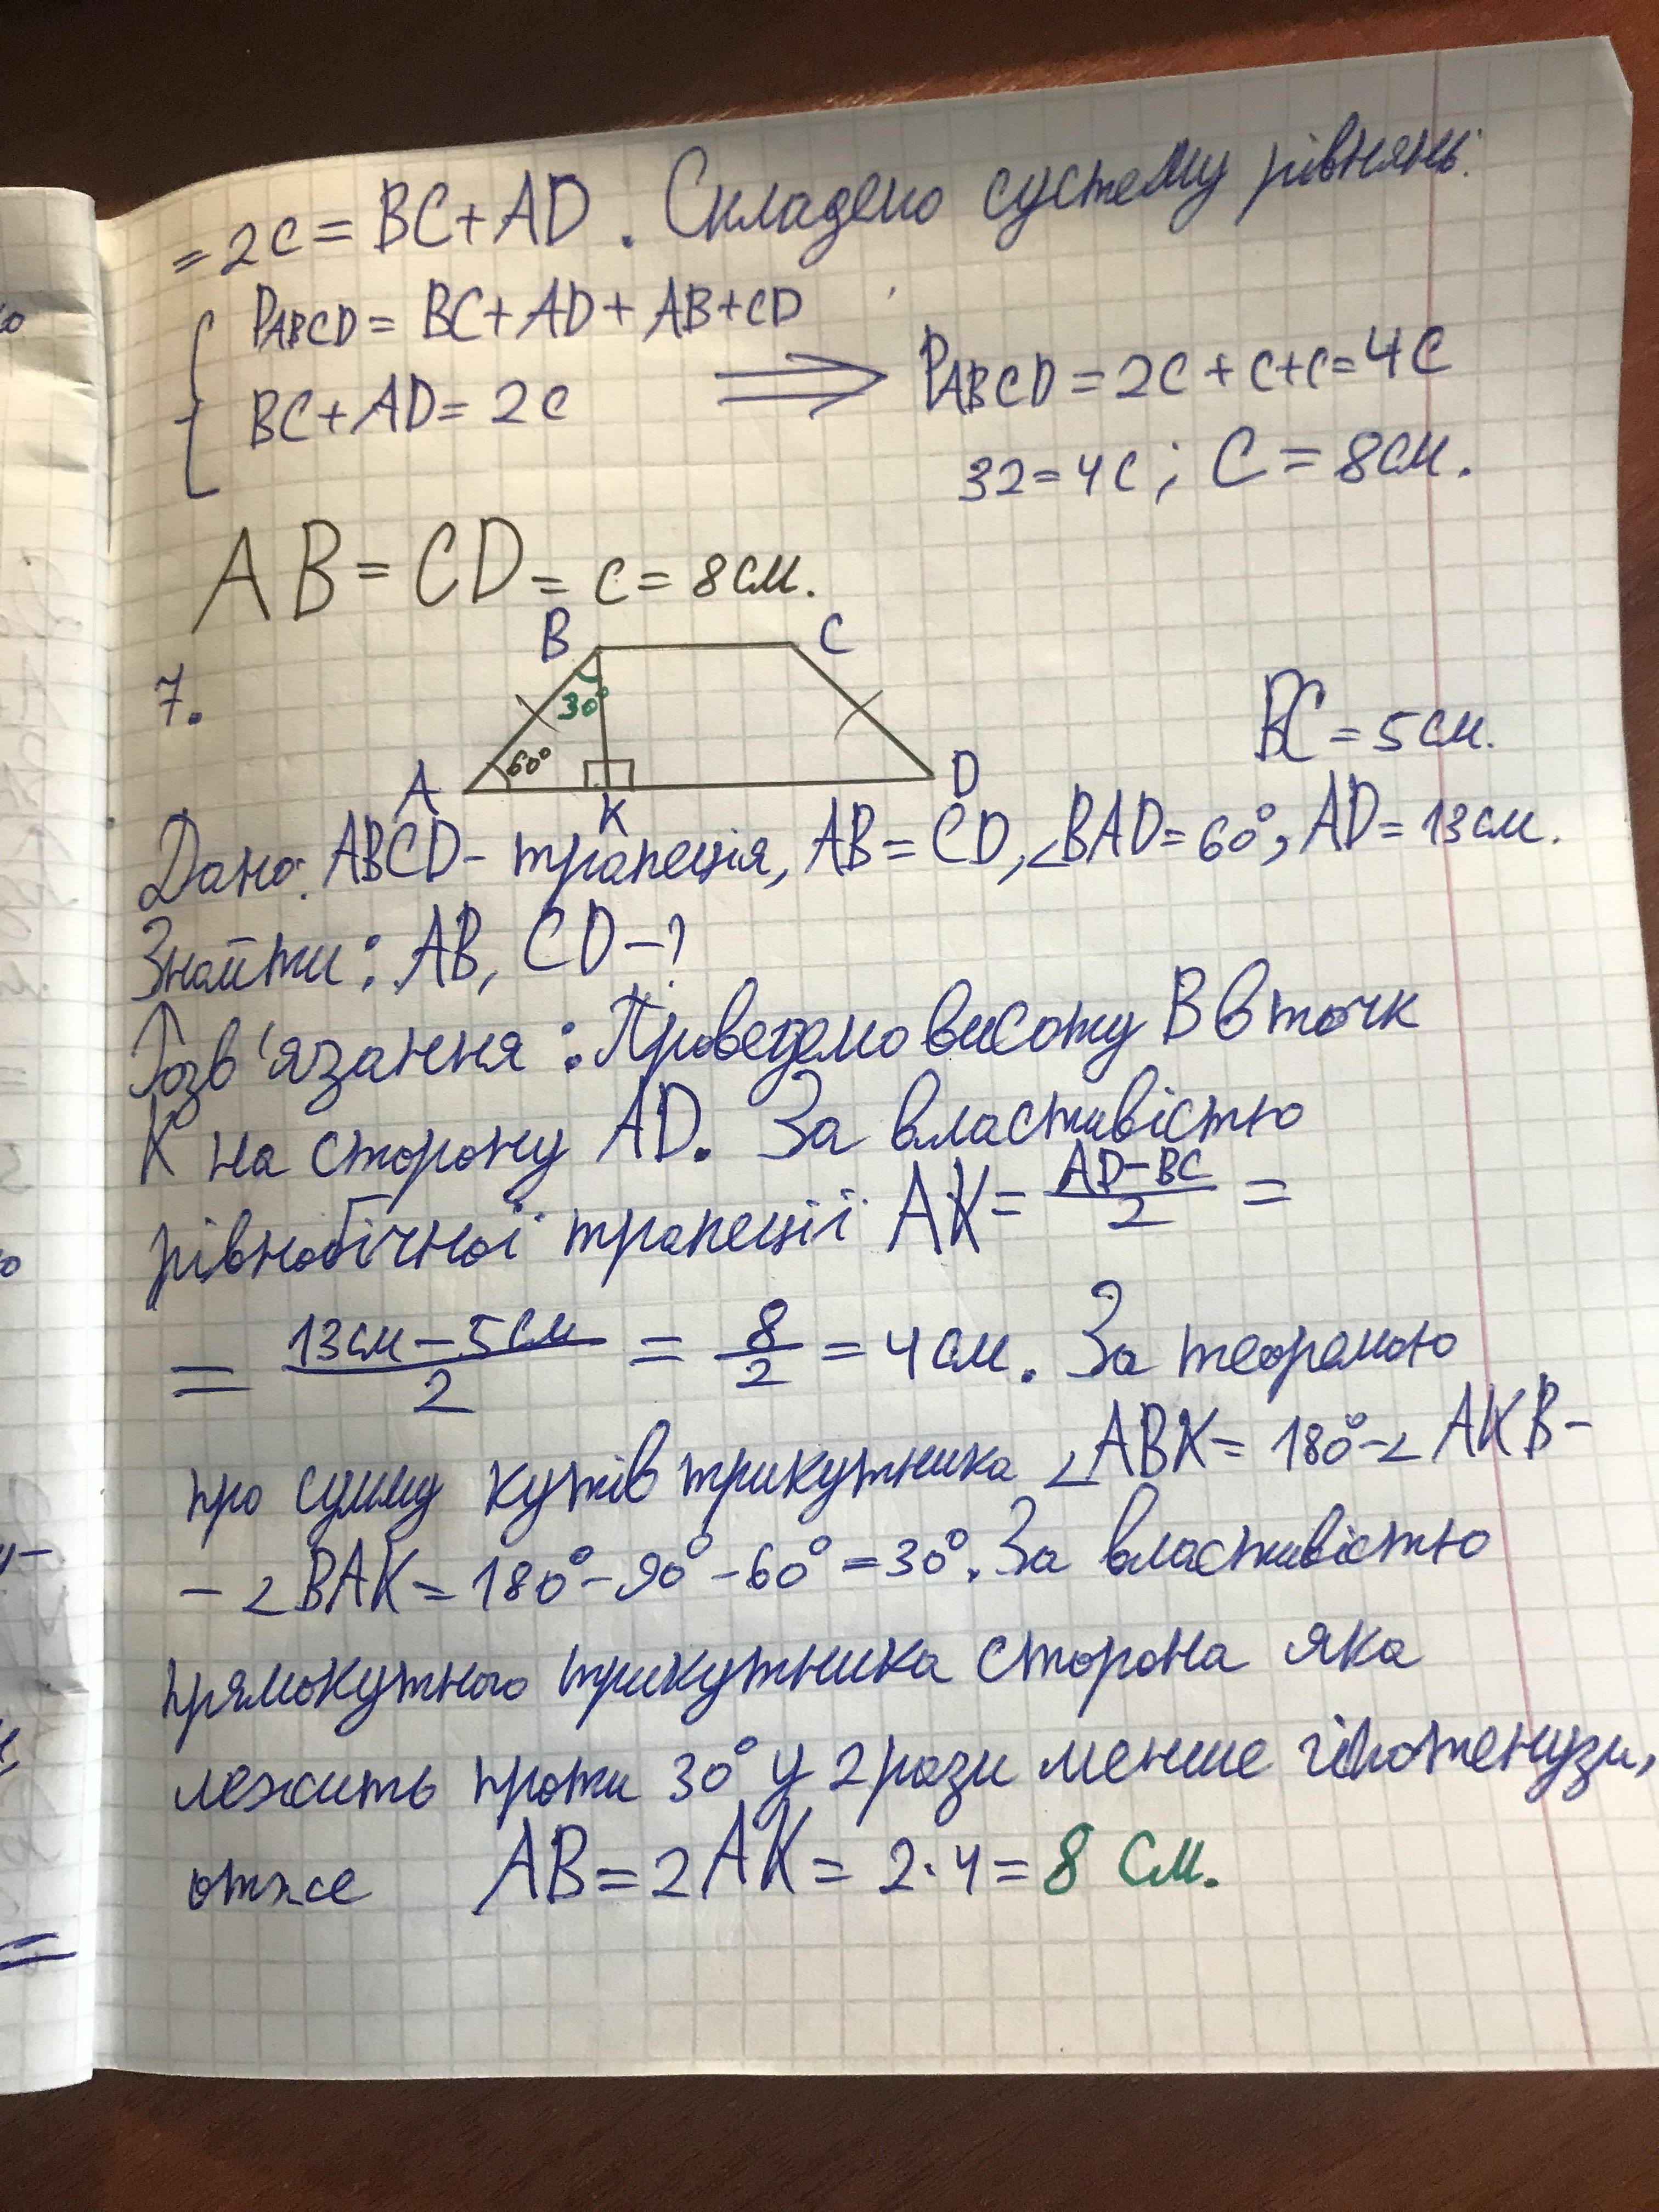 = 2c = BC + AD. Складемо систему рівнянь:
P ABCD = BC + AD + AB + CD
BC + AD = 2c ⟹ P ABCD = 2c + c + c = 4c
32 = 4c; c = 8 см.
AB = CD = c = 8 см.
B C
7.
30°
BC = 5 см.
60°
A K D
Дано: ABCD - трапеція, AB = CD, ∠BAD = 60°, AD = 13 см.
Знайти: AB, CD - ?
Розв'язання: Проведемо висоту B в точк
K на сторону AD. За властивістю
рівнобічної трапеції AK = (AD - BC)/2 =
= (13 см - 5 см)/2 = 8/2 = 4 см. За теоремою
про сумму кутів трикутника ∠ABK = 180° - ∠AKB -
- ∠BAK = 180° - 90° - 60° = 30°. За властивістю
прямокутного трикутника сторона яка
лежить проти 30° у 2 рази менше гіпотенузи,
отже AB = 2AK = 2·4 = 8 см.